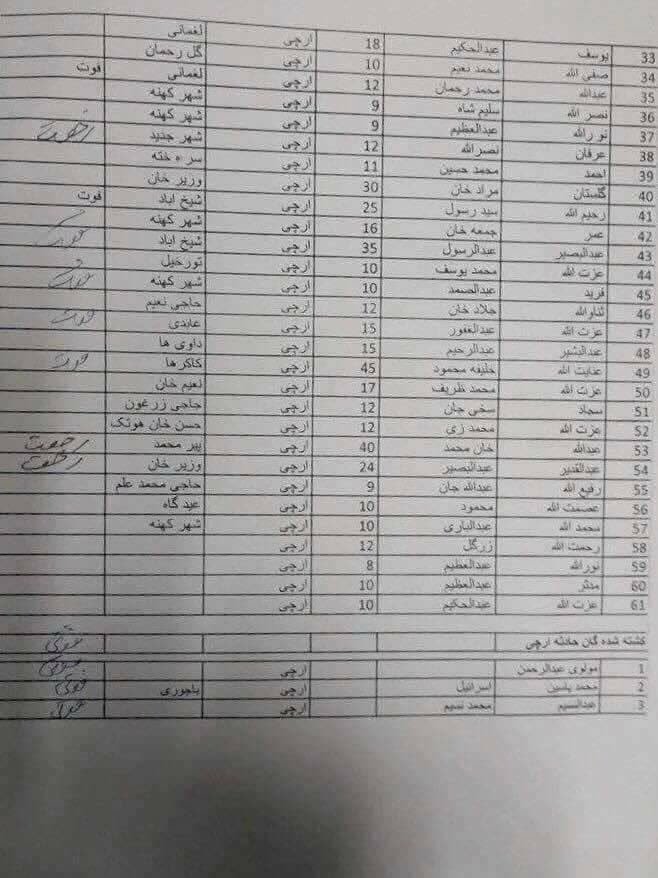 33 یوسف عبدالحکیم 18 ارچی لغمانی
34 صفی الله محمد نعیم 10 ارچی گل رحمان
35 عبدالله محمد رحمان 12 ارچی لغمانی فوت
36 نصر الله سلیم شاه 9 ارچی شهر کهنه
37 نورالله عبدالعظیم 9 ارچی شهر کهنه
38 عرفان نصرالله 12 ارچی شهر جدید رخصت
39 احمد محمد حسین 11 ارچی سره خته
40 گلستان مراد خان 30 ارچی وزیر خان
41 رحیم الله سید رسول 25 ارچی شیخ اباد فوت
42 عمر جمعه خان 16 ارچی شهر کهنه
43 عبدالبصیر عبدالرسول 35 ارچی شیخ اباد فوت
44 عزت الله محمد یوسف 10 ارچی نورخیل
45 فرید عبدالصمد 10 ارچی شهر کهنه فوت
46 ثناوالله جلاد خان 12 ارچی حاجی نعیم
47 عزت الله عبدالغفور 15 ارچی عابدی فوت
48 عبدالبشیر عبدالرحیم 15 ارچی داوی ها
49 عنایت الله خلیفه محمود 45 ارچی کاکرها فوت
50 عزت الله محمد ظریف 17 ارچی نعیم خان
51 سجاد سخی جان 12 ارچی حاجی زرغون
52 عزت الله محمد زی 12 ارچی حسن خان هوتک
53 عبدالله خان محمد 40 ارچی پیر محمد رخصت
54 عبدالقدیر عبدالبصیر 24 ارچی وزیر خان رخصت
55 رفیع الله عبدالله جان 9 ارچی حاجی محمد علم
56 عصمت الله محمود 10 ارچی عید گاه
57 محمد الله عبدالباری 10 ارچی شهر کهنه
58 رحمت الله زرگل 12 ارچی
59 نورالله عبدالعظیم 8 ارچی
60 مدثر عبدالعظیم 10 ارچی
61 عزت الله عبدالحکیم 10 ارچی
کشته شده گان حادثه ارچی
1 مولوی عبدالرحمن ارچی
2 محمد یاسین اسرائیل ارچی باجوری
3 عبدالسیم محمد نسیم ارچی